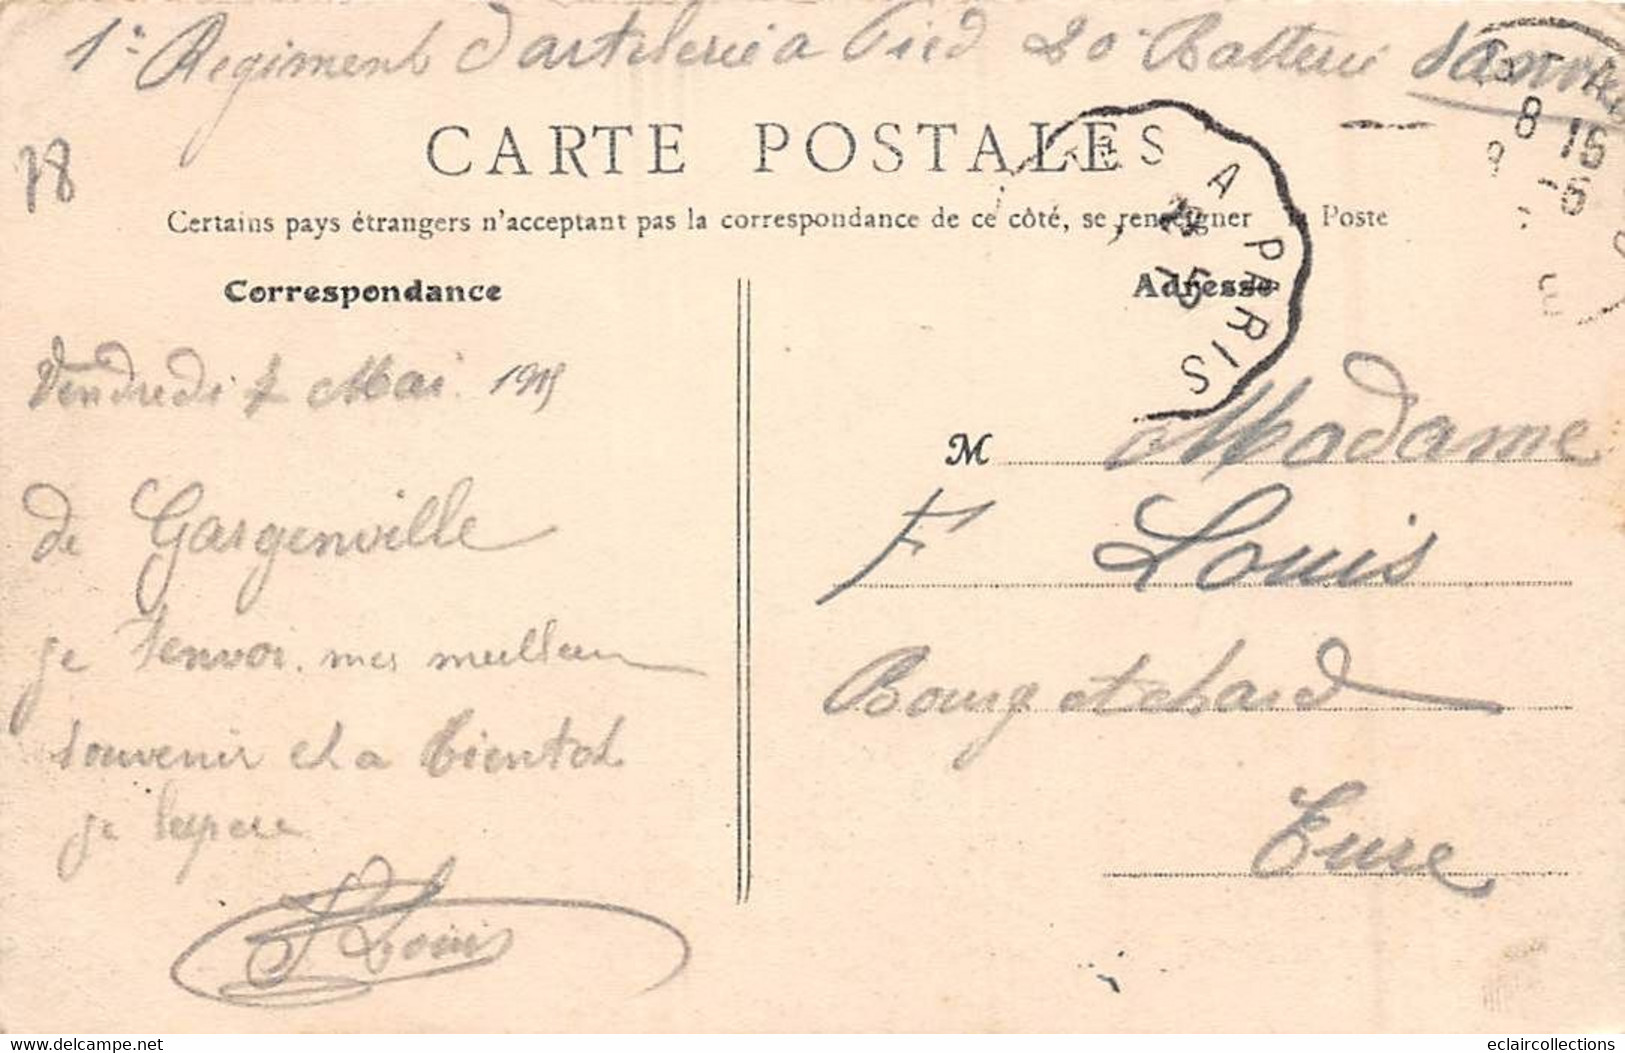 1e Regiment d'artilerie a Pied 20e Batterie
CARTE POSTALES
78
Certains pays étrangers n'acceptant pas la correspondance de ce côté, se renseigner à la Poste
Correspondance
Adresse
A PARIS
8 15
Vendredi 7 Mai 1915
de Gargenville
je tenvoi mes meilleur
souvenir et a bientot
je lespere
F Louis
M Madame
F Louis
Bourg etchard
Eure
eclaircollections